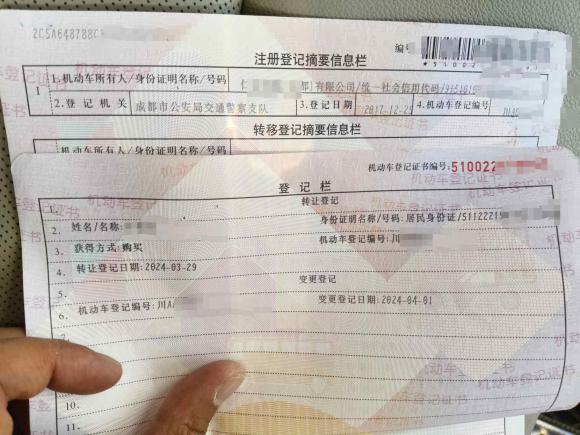 2C5A648788C
编
*51002
注册登记摘要信息栏
1
1.机动车所有人/身份证明名称/号码
有限公司/统一社会信用代码/915101
2.登记机关
成都市公安局交通警察支队
3.登记日期
2017-12-25
4.机动车登记编号
川
转移登记摘要信息栏
机动车所有人/身份证明名称/号码
机动车登记证书编号:510022
登记栏
1.
转让登记
2.
姓名/名称:
身份证明名称/号码:居民身份证/51122219
3.
获得方式:购买
机动车登记编号:川
4.
转让登记日期:2024-03-29
5.
变更登记
6.
机动车登记编号:川A
变更登记日期:2024-04-01
10.
11.
机动车登记证书